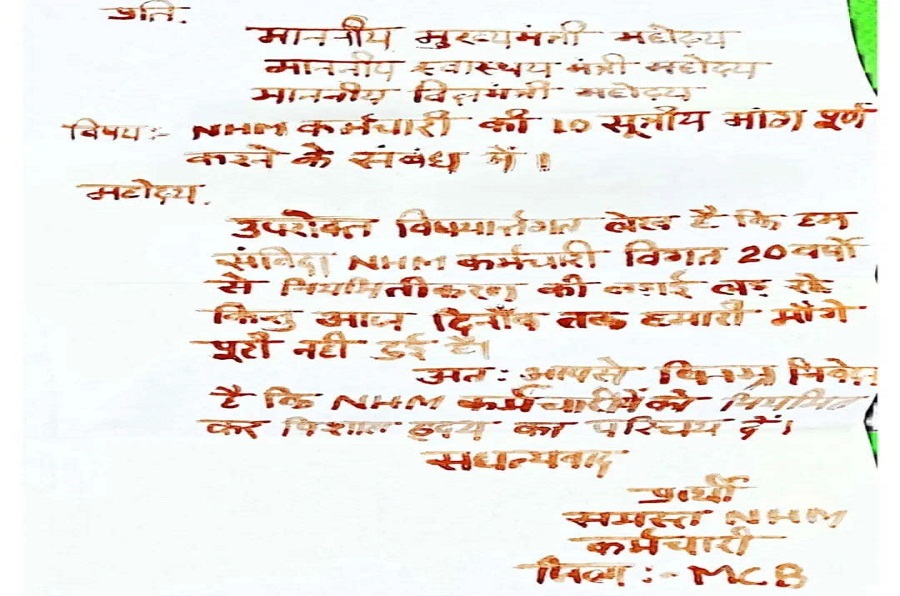 प्रति.
माननीय मुख्यमंत्री महोदय
माननीय स्वास्थय मंत्री महोदय
माननीय वित्तमंत्री महोदय
विषय :- NHM कर्मचारी की 10 सूत्रीय मांग पूर्ण
करने के संबंध में।
महोदय.
उपरोक्त विषयार्न्तगत लेख है कि हम
संविदा NHM कर्मचारी विगत 20 वर्षो
से नियमितीकरण की लड़ाई लड़ रहे
किन्तु आज दिनाँक तक हमारी माँगे
पूरी नही हुई है।
अत: आपसे विनम्र निवेदन
है कि NHM कर्मचारीयों को नियमित
कर विशाल हृदय का परिचय दें।
सधन्यवाद
प्रार्थी
समस्त NHM
कर्मचारी
जिला :- MCB